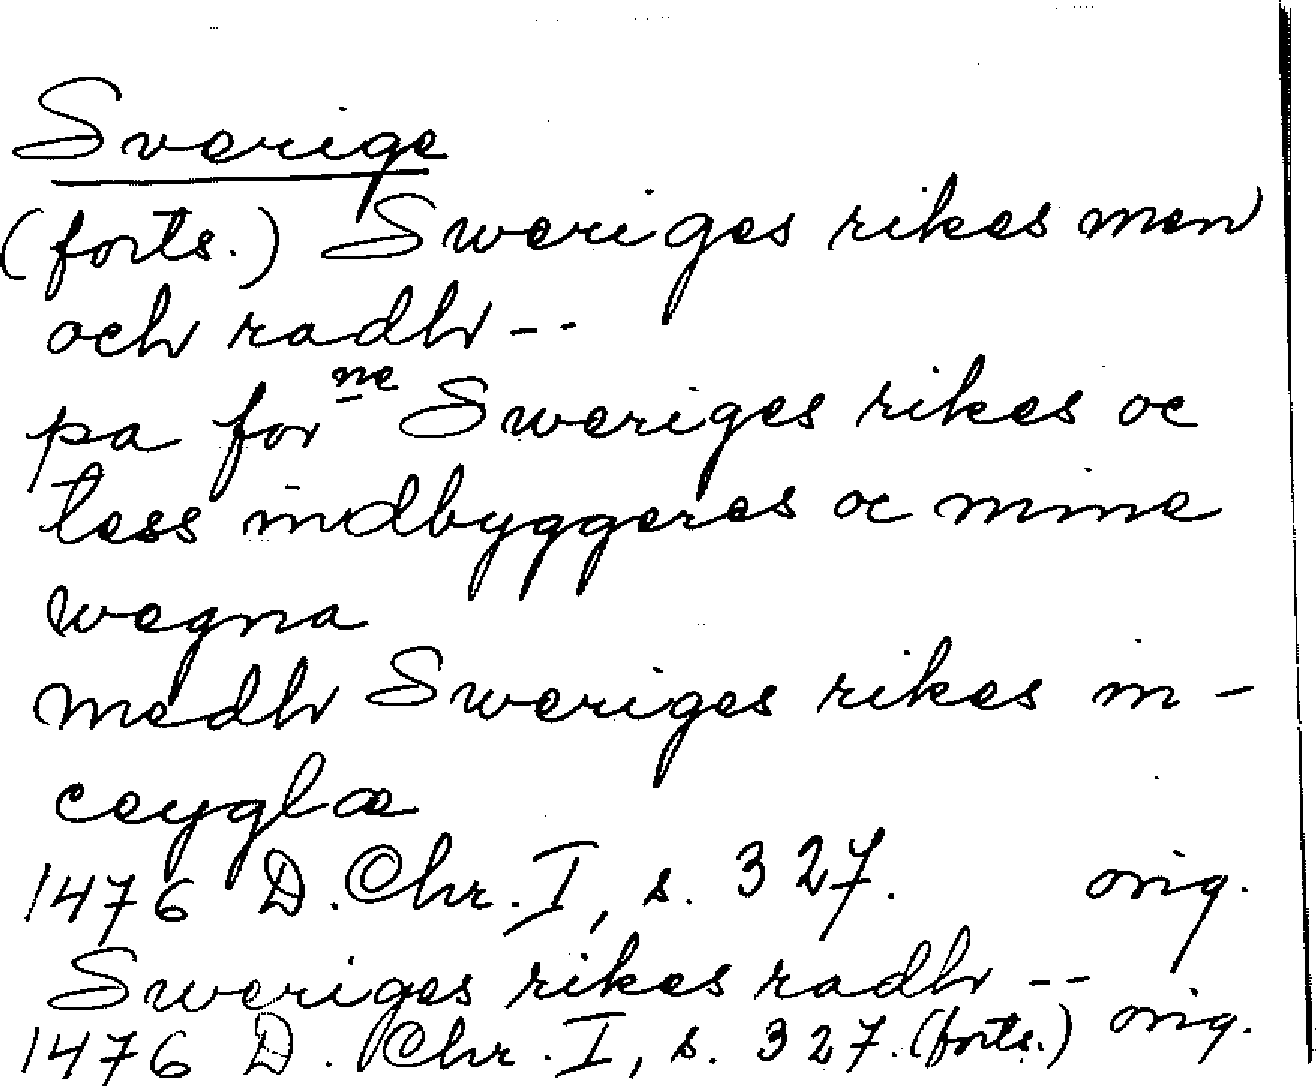 Sverige
(forts.) Sweriges rikes men
och radh --
pa for ne Sweriges rikes oc
tess indbyggeres oc mine
wegna
medh Sweriges rikes in-
ceyglæ
1476 D. Chr. I, s. 327. orig.
Sweriges rikes radh --
1476 D. Chr. I, s. 327. (forts.) orig.